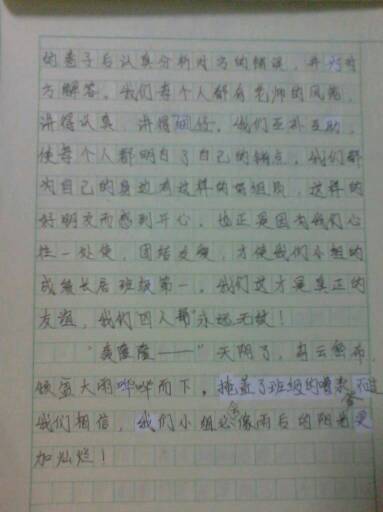 的卷子后认真分析对方的错误，并为对
方解答。我们每个人都有老师的风范，
讲得认真，讲得细仔。我们互补互助，
使每个人都明白了自己的错点。我们都
为自己的身边有这样的好组员，这样的
好朋友而感到开心。也正是因为我们心
往一处使，团结友爱，才使我们小组的
成绩长居班级第一。我们这才是真正的
友谊，我们四人帮永远无敌！
“轰隆隆——”天阴了，乌云密布，
倾盆大雨哗哗而下，掩盖了班级的嘈杂
我们相信，我们小组必会像雨后的阳光更
加灿烂！